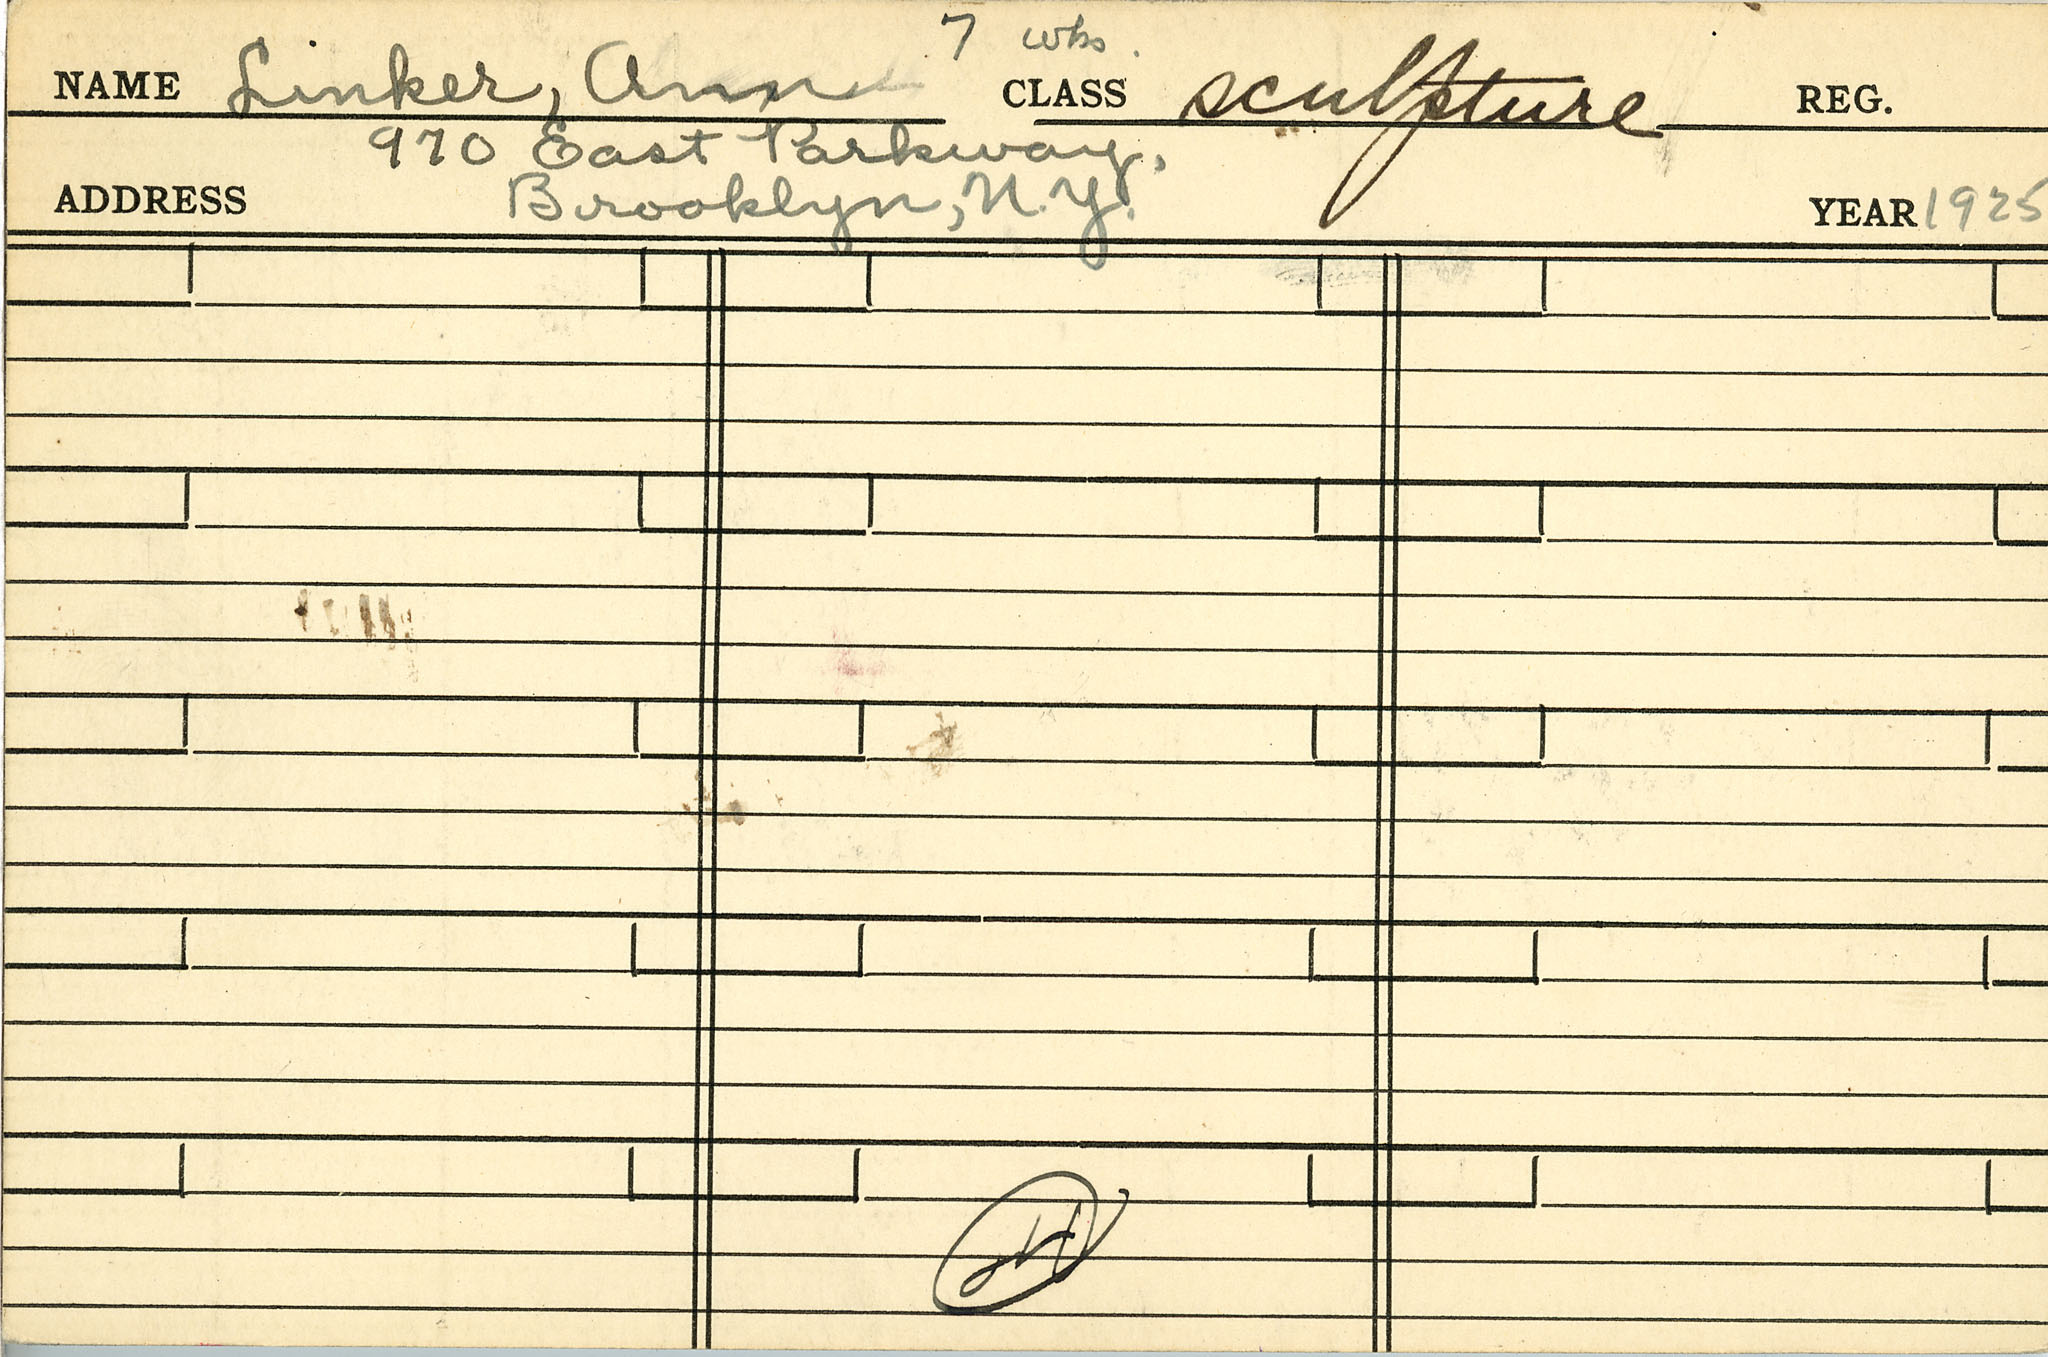 7 wks.
NAME Linker, Anna CLASS sculpture REG.
970 East Parkway,
ADDRESS Brooklyn, N.Y. YEAR 1925